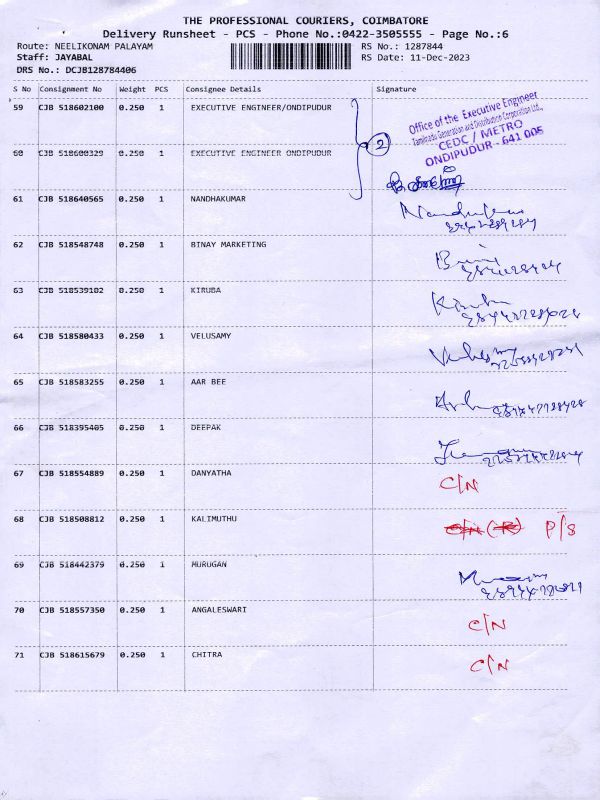 THE PROFESSIONAL COURIERS, COIMBATORE
Delivery Runsheet - PCS - Phone No.:0422-3505555 - Page No.:6
Route: NEELIKONAM PALAYAM RS No.: 1287844
Staff: JAYABAL RS Date: 11-Dec-2023
DRS No.: DCJB128784406
S No Consignment No Weight PCS Consignee Details Signature
59 CJB 518602100 0.250 1 EXECUTIVE ENGINEER/ONDIPUDUR
2
Office of the Executive Engineer
Tamilnadu Generation and Distribution Corporation Ltd.,
CEDC / METRO
ONDIPUDUR - 641 005
60 CJB 518600329 0.250 1 EXECUTIVE ENGINEER ONDIPUDUR
61 CJB 518640565 0.250 1 NANDHAKUMAR
62 CJB 518548748 0.250 1 BINAY MARKETING
63 CJB 518539102 0.250 1 KIRUBA
64 CJB 518580433 0.250 1 VELUSAMY
65 CJB 518583255 0.250 1 AAR BEE
66 CJB 518395405 0.250 1 DEEPAK
67 CJB 518554889 0.250 1 DANYATHA C/N
68 CJB 518508812 0.250 1 KALIMUTHU P/S
69 CJB 518442379 0.250 1 MURUGAN
70 CJB 518557350 0.250 1 ANGALESWARI C/N
71 CJB 518615679 0.250 1 CHITRA C/N